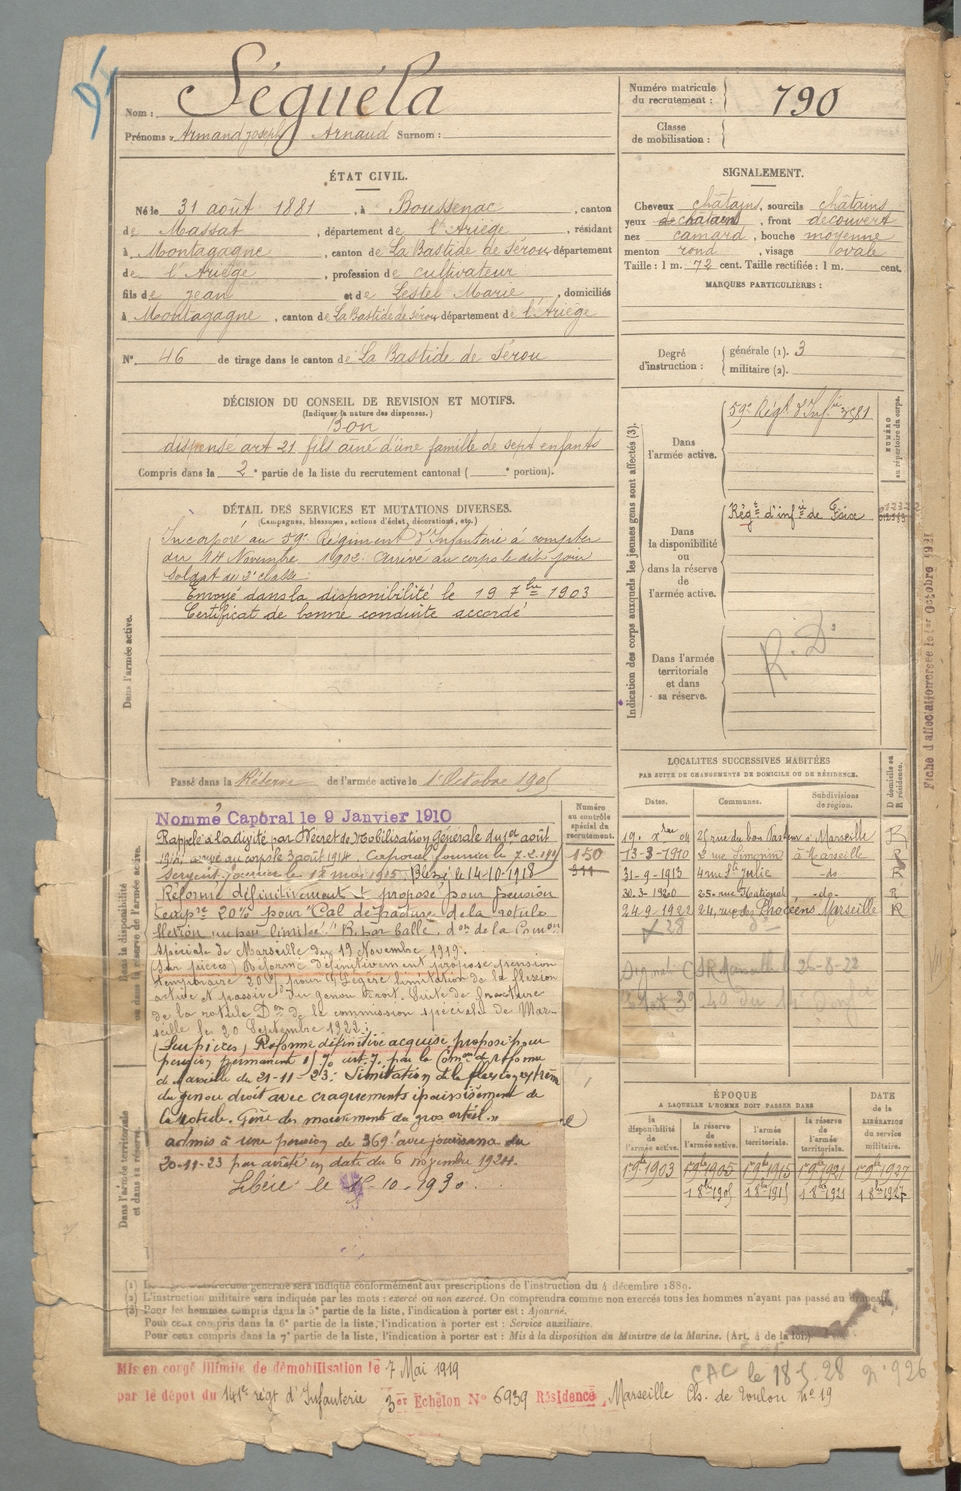 Nom : Séguéla
Prénoms : Armand joseph Arnaud Surnom :
Numéro matricule du recrutement : 790
Classe de mobilisation :
ÉTAT CIVIL.
Né le 31 août 1881, à Boussenac, canton
de Massat, département de l'Ariège, résidant
à Montagagne, canton de La Bastide de sérou département
de l'Ariège, profession de cultivateur
fils de jean et de Lestel Marie, domiciliés
à Montagagne, canton de La Bastide de sérou département de l'Ariège
N° 46 de tirage dans le canton de La Bastide de Sérou
SIGNALEMENT.
Cheveux châtains, sourcils châtains
yeux châtains, front découvert
nez camard, bouche moyenne
menton rond, visage ovale
Taille : 1 m. 72 cent. Taille rectifiée : 1 m. cent.
MARQUES PARTICULIÈRES :
Degré d'instruction : générale (1). 3
militaire (2).
DÉCISION DU CONSEIL DE REVISION ET MOTIFS.
(Indiquer la nature des dispenses.)
Bon
dispensé art 21 fils aîné d'une famille de sept enfants
Compris dans la 2e partie de la liste du recrutement cantonal ( e portion).
DÉTAIL DES SERVICES ET MUTATIONS DIVERSES.
(Campagnes, blessures, actions d'éclat, décorations, etc.)
Dans l'armée active.
Incorporé au 59e Régiment d'Infanterie à compter
du 14 Novembre 1902. Arrivé au corps le dit jour
soldat de 2e classe
Envoyé dans la disponibilité le 19 7bre 1903
Certificat de bonne conduite accordé
Passé dans la Réserve de l'armée active le 1er Octobre 1905
Indication des corps auxquels les jeunes gens sont affectés (3).
NUMÉRO au répertoire du corps.
Dans l'armée active.
59e Régt d'Infie
Dans la disponibilité ou dans la réserve de l'armée active.
Régt d'infie de Foix
Dans l'armée territoriale et dans sa réserve.
R. D
Fiche d'affectation versée le 1er Octobre 1921
Dans la disponibilité ou dans la réserve de l'armée active.
Nommé Caporal le 9 Janvier 1910
Rappelé à l'activité par Décret de Mobilisation générale du 1er août
1914, arrivé au corps le 3 août 1914. Caporal fourrier le
Sergent fourrier le 12 mai 1915. Blessé le 14-10-1918
Réformé définitivement et proposé pour pension
tempre 20% pour "Cal de fracture de la rotule
flexion un peu limitée." R. par balle, don de la Comon
spéciale de Marseille du 19 Novembre 1919.
(Sur pièces) Réforme définitivement proposé pension
temporaire 20% pour Légère limitation de la flexion
active et passive du genou droit. Suite de fracture
de la rotule Don de la commission spéciale de Mar-
seille le 20 Septembre 1922.
(Sur pièces) Réforme définitive acquise, proposé pour
pension permanente art. 7. par la Comon de réforme
de Marseille du 21-11-23: Limitation de la flexion extrême
du genou droit avec craquements épaississement de
la rotule. Gêne des mouvements du gros orteil."
admis à une pension de 369f avec jouissance du
20-11-23 par arrêté en date du 6 novembre 1924.
Libéré le 15-10-1930.
Dans l'armée territoriale et dans sa réserve.
Numéro au contrôle spécial du recrutement.
150
LOCALITES SUCCESSIVES HABITÉES
PAR SUITE DE CHANGEMENTS DE DOMICILE OU DE RÉSIDENCE.
Dates. Communes. Subdivisions de région. D domicile ou R résidence.
19. Xbre 04 25 rue du bon Pasteur à Marseille R
13-3-1910 2 rue Simonin à Marseille R
31-9-1913 4 rue Ste Julie -do- R
30.3-1920 25. rue National -do- R
24-9 1922 24, rue des Phocéens Marseille R
ÉPOQUE
A LAQUELLE L'HOMME DOIT PASSER DANS
la disponibilité de l'armée active. la réserve de l'armée active. l'armée territoriale. la réserve de l'armée territoriale. DATE de la LIBÉRATION du service militaire.
1 9bre 1903 1 9bre 1905 1 9bre 1915 1 9bre 1921 1 9bre 1927
1 8bre 1905 1 8bre 1915 1 8bre 1921 1 8bre 1927
générale sera indiqué conformément aux prescriptions de l'instruction du 4 décembre 1889.
(2) L'instruction militaire sera indiquée par les mots : exercé ou non exercé. On comprendra comme non exercés tous les hommes n'ayant pas passé au drapeau.
(3) Pour les hommes compris dans la 5e partie de la liste, l'indication à porter est : Ajourné.
Pour ceux compris dans la 6e partie de la liste, l'indication à porter est : Service auxiliaire.
Pour ceux compris dans la 7e partie de la liste, l'indication à porter est : Mis à la disposition du Ministre de la Marine. (Art. 4 de la loi.)
Mis en congé illimité de démobilisation le 7 Mai 1919
par le dépôt du 141e régt d'Infanterie 3er Echelon N° 6939 Résidence, Marseille Ch. de Toulon n° 19
CAC le 18.5.28 n° 926